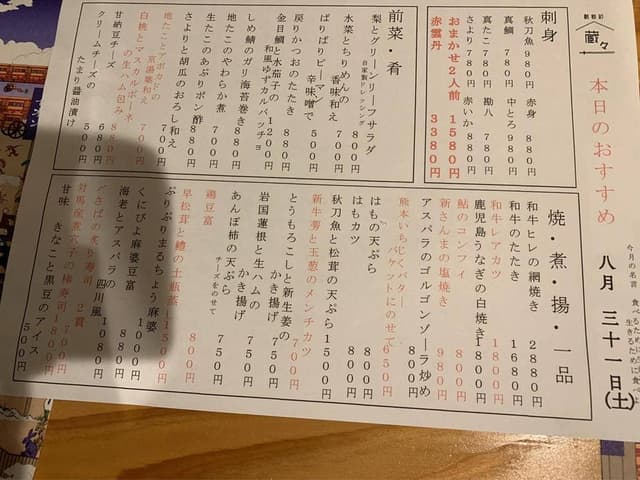 蔵々
本日のおすすめ
八月三十一日(土)
今月の名言
刺身
秋刀魚 980円
赤身 880円
真鯛 780円
中とろ 980円
真たこ 780円
勘八 780円
さより 780円
赤いか 880円
おまかせ2人前 1580円
赤雲丹 3380円
前菜・肴
梨とグリーンリーフサラダ
自家製ドレッシング 800円
水菜とちりめんの
香味和え 700円
ぱりぱりピーマン
辛味噌で 500円
戻りかつおのたたき 880円
金目鯛と水茄子の
和風ゆずカルパッチョ 1200円
しめ鯖のガリ海苔巻き 880円
地たこのやわらか煮 880円
生たこのあぶりポン酢 880円
さよりと胡瓜のおろし和え 700円
地たことアボカドの
京湯葉和え 700円
白桃とスカルポーネ
の生ハム包み
甘納豆チーズ 680円
クリームチーズの
たまり醤油漬け 500円
焼・煮・揚・一品
和牛ヒレの網焼き 2880円
和牛のたたき 1680円
和牛レアカツ 1800円
鹿児島うなぎの白焼き 1800円
鮎のコンフィ 800円
新さんまの塩焼き 980円
アスパラのゴルゴンゾーラ炒め 800円
熊本いちじくバター
バゲットにのせて 650円
はもの天ぷら 800円
はもカツ 800円
秋刀魚と松茸の天ぷら 1500円
新牛蒡と玉葱のメンチカツ 700円
とうもろこしと新生姜の
かき揚げ 750円
岩国蓮根と生ハムの
かき揚げ 750円
あんぽ柿の天ぷら
チーズをのせて 750円
鶏豆富 800円
早松茸と鱧の土瓶蒸し 1500円
ぷりぷりまるちょう麻婆 1000円
くにびよ麻婆豆富 880円
海老とアスパラの
四川風 1080円
さばの炙り寿司 2貫 700円
対馬産煮穴子の棒寿司 1800円
甘味 きなこと黒豆のアイス 500円